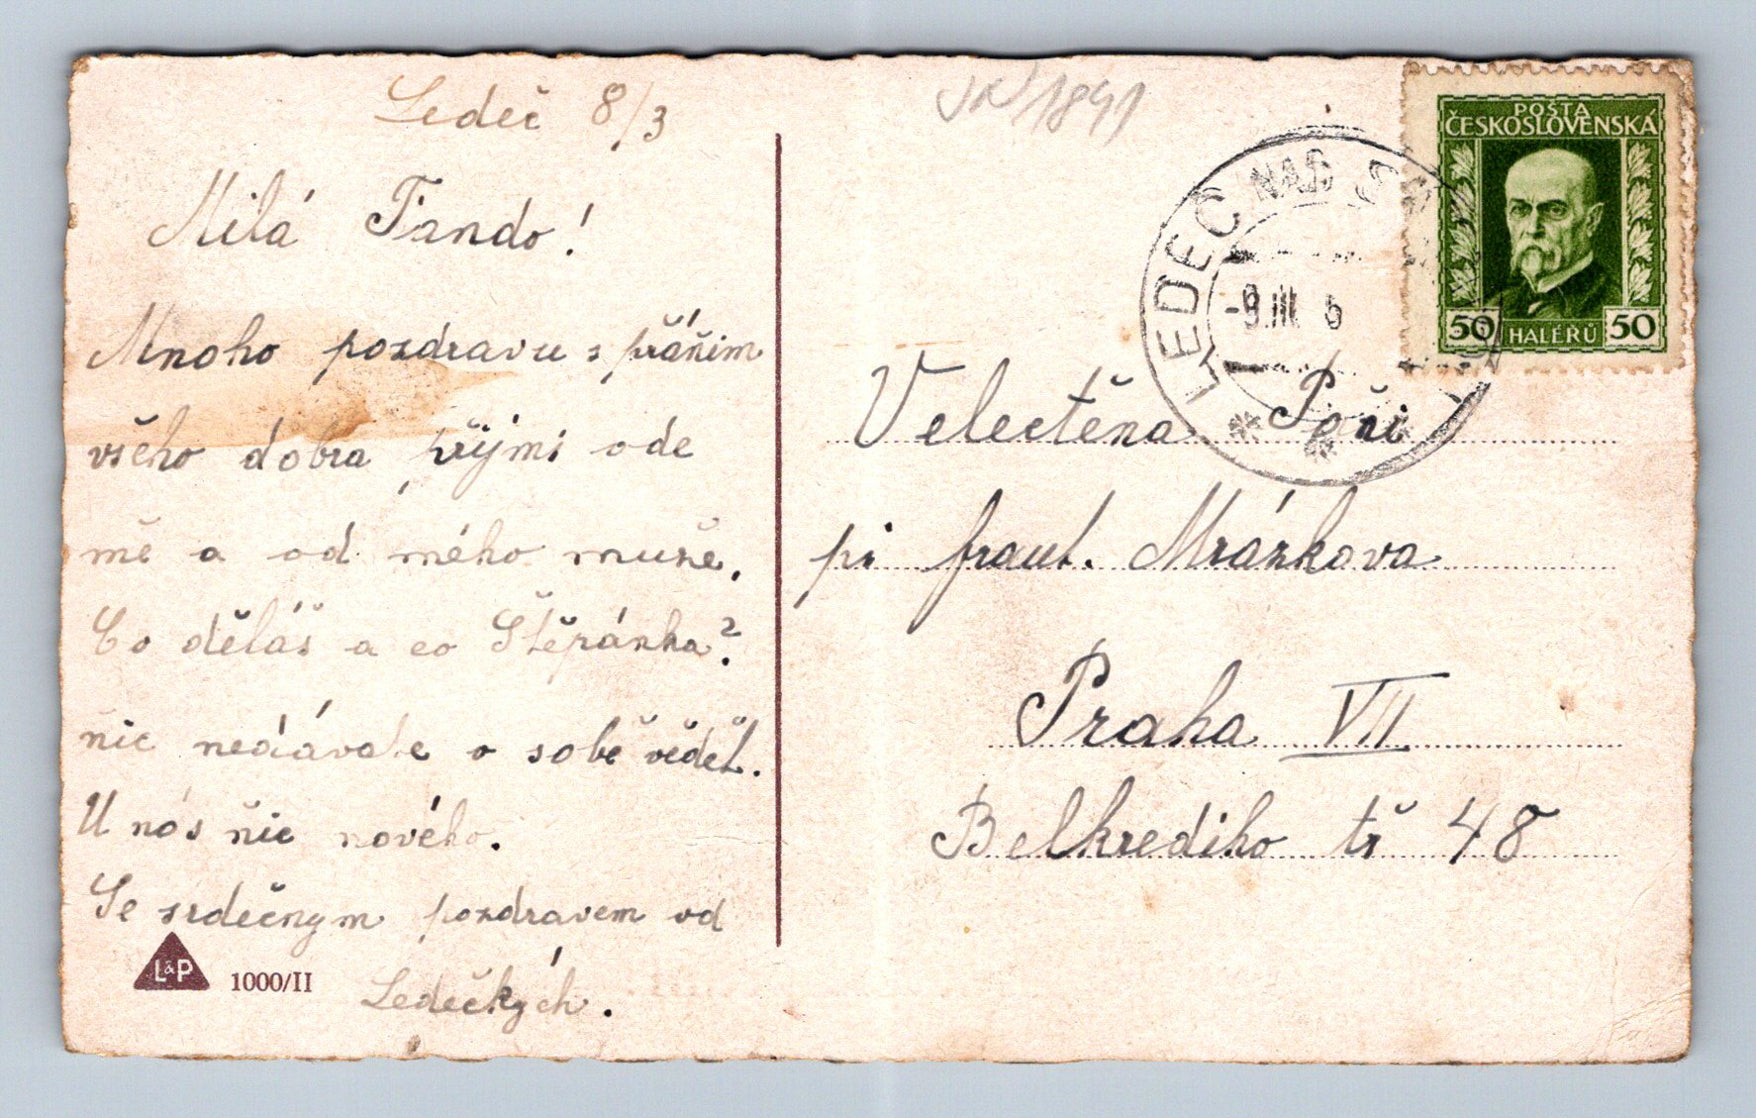 Ledeč 8/3
Milá Fando!
Mnoho pozdravu s přáňim
všeho dobra přijmi ode
mě a od mého muže.
Co děláš a co Štěpánka?
ňic nedávate o sobě vědět.
U nás ňic nového.
Se srdečnym pozdravem od
Ledečkých.
L&P 1000/II
1841
POŠTA
ČESKOSLOVENSKÁ
50 HALÉŘŮ 50
LEDEČ NAD
-9.III. 6
Velectěna Paňi
pi frant. Mrázkova
Praha VII
Belkrediho tř 48